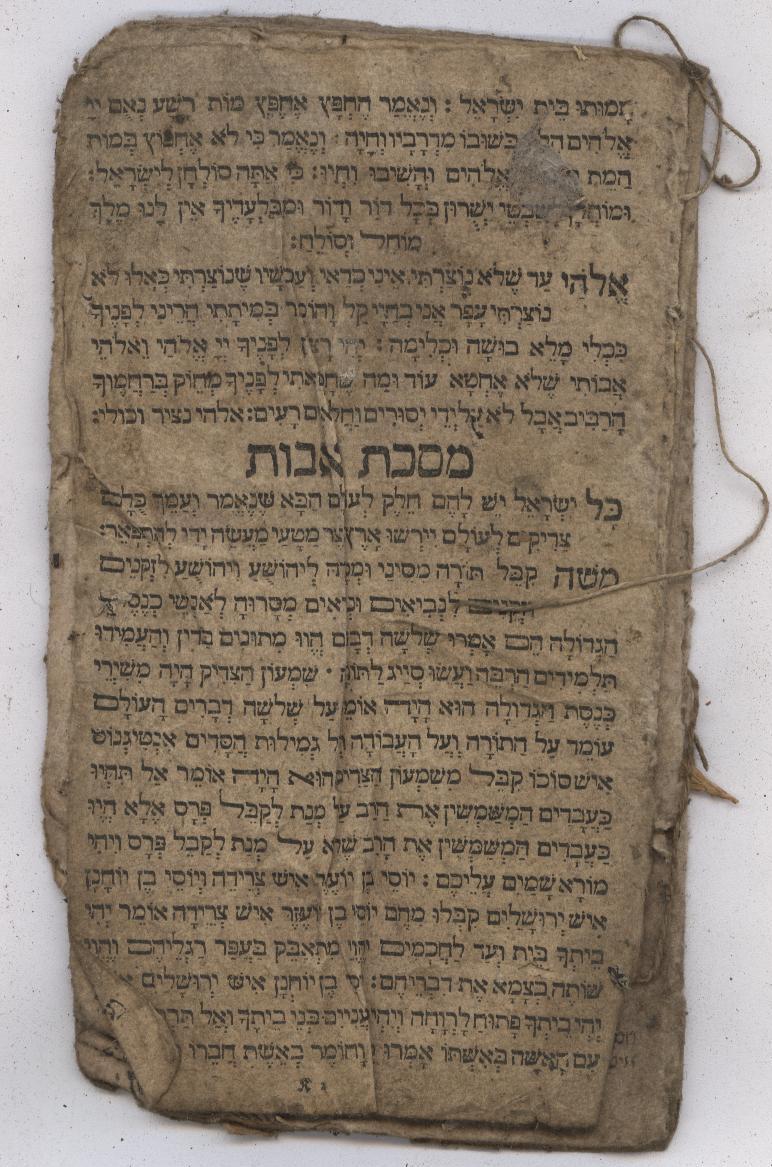 תָמוּתוּ בֵּית יִשְׂרָאֵל : וְנֶאֱמַר הֶחָפֵץ אֶחְפֹּץ מוֹת רָשָׁע נְאֻם יְיָ
אֱלֹהִים בְּשׁוּבוֹ מִדְּרָכָיו וְחָיָה · וְנֶאֱמַר כִּי לֹא אֶחְפּוֹץ בְּמוֹת
הַמֵּת אֱלֹהִים וְהָשִׁיבוּ וִחְיוּ : כִּי אַתָּה סוֹלְחָן לְיִשְׂרָאֵל :
וּמוֹחֲלָן לְשִׁבְטֵי יְשֻׁרוּן בְּכָל דּוֹר וָדוֹר וּמִבַּלְעָדֶיךָ אֵין לָנוּ מֶלֶךְ
מוֹחֵל וְסוֹלֵחַ :
אֱלֹהַי עַד שֶׁלֹּא נוֹצַרְתִּי אֵינִי כְדַאי וְעַכְשָׁיו שֶׁנּוֹצַרְתִּי כְּאִלּוּ לֹא
נוֹצַרְתִּי עָפָר אֲנִי בְּחַיַּי קַל וָחוֹמֶר בְּמִיתָתִי הֲרֵינִי לְפָנֶיךָ
כִּכְלִי מָלֵא בוּשָׁה וּכְלִימָה : יְהִי רָצוֹן לְפָנֶיךָ יְיָ אֱלֹהַי וֵאלֹהֵי
אֲבוֹתַי שֶׁלֹּא אֶחֱטָא עוֹד וּמַה שֶּׁחָטָאתִי לְפָנֶיךָ מְחוֹק בְּרַחֲמֶיךָ
הָרַבִּים אֲבָל לֹא עַל יְדֵי יִסּוּרִים וָחֳלָאִים רָעִים : אלהי נציר וכולי :
מסכת אבות
כָּל יִשְׂרָאֵל יֵשׁ לָהֶם חֵלֶק לְעוֹלָם הַבָּא שֶׁנֶּאֱמַר וְעַמֵּךְ כֻּלָּם
צַדִּיקִים לְעוֹלָם יִירְשׁוּ אָרֶץ נֵצֶר מַטָּעַי מַעֲשֵׂה יָדַי לְהִתְפָּאֵר :
משֶׁה קִבֵּל תּוֹרָה מִסִּינַי וּמְסָרָהּ לִיהוֹשֻׁעַ וִיהוֹשֻׁעַ לִזְקֵנִים
וּזְקֵנִים לִנְבִיאִים וּנְבִיאִים מְסָרוּהָ לְאַנְשֵׁי כְנֶסֶת
הַגְּדוֹלָה הֵם אָמְרוּ שְׁלֹשָׁה דְבָרִים הֱווּ מְתוּנִים בַּדִּין וְהַעֲמִידוּ
תַּלְמִידִים הַרְבֵּה וַעֲשׂוּ סְיָיג לַתּוֹרָה · שִׁמְעוֹן הַצַּדִּיק הָיָה מִשְּׁיָרֵי
כְּנֶסֶת הַגְּדוֹלָה הוּא הָיָה אוֹמֵר עַל שְׁלֹשָׁה דְבָרִים הָעוֹלָם
עוֹמֵד עַל הַתּוֹרָה וְעַל הָעֲבוֹדָה וְעַל גְּמִילוּת חֲסָדִים אַנְטִיגְנוֹס
אִישׁ סוֹכוֹ קִבֵּל מִשִּׁמְעוֹן הַצַּדִּיק הוּא הָיָה אוֹמֵר אַל תִּהְיוּ
כַּעֲבָדִים הַמְשַׁמְּשִׁין אֶת הָרַב עַל מְנָת לְקַבֵּל פְּרָס אֶלָּא הֱיוּ
כַּעֲבָדִים הַמְשַׁמְּשִׁין אֶת הָרַב שֶׁלֹּא עַל מְנָת לְקַבֵּל פְּרָס וִיהִי
מוֹרָא שָׁמַיִם עֲלֵיכֶם : יוֹסֵי בֶן יוֹעֶזֶר אִישׁ צְרֵידָה וְיוֹסֵי בֶן יוֹחָנָן
אִישׁ יְרוּשָׁלַיִם קִבְּלוּ מֵהֶם יוֹסֵי בֶן יוֹעֶזֶר אִישׁ צְרֵידָה אוֹמֵר יְהִי
בֵיתְךָ בֵּית וַעַד לַחֲכָמִים וֶהֱוֵי מִתְאַבֵּק בַּעֲפַר רַגְלֵיהֶם וֶהֱוֵי
שׁוֹתֶה בַצָּמָא אֶת דִּבְרֵיהֶם : יוֹסֵי בֶן יוֹחָנָן אִישׁ יְרוּשָׁלַיִם
יְהִי בֵיתְךָ פָּתוּחַ לָרְוָחָה וְיִהְיוּ עֲנִיִּים בְּנֵי בֵיתֶךָ וְאַל
עִם הָאִשָּׁה בְּאִשְׁתּוֹ אָמְרוּ וָחוֹמֶר בְּאֵשֶׁת חֲבֵרוֹ